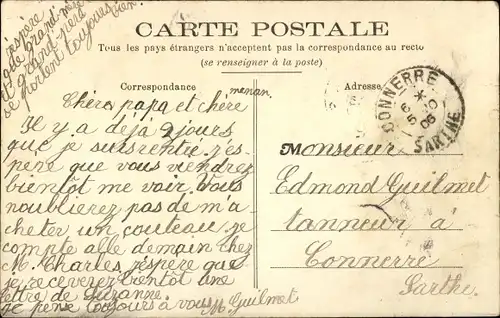 j'espère
que grand'mère
et grand père
se portent toujours
bien.
CARTE POSTALE
Tous les pays étrangers n'acceptent pas la correspondance au recto
(se renseigner à la poste)
Correspondance
Adresse
CONNERRÉ
6
5 10
06
SARTHE
Chère papa et chère meman.
Il y a déjà 2 jours
que je suis rentré j'es-
père que vous viendrez
bientôt me voir. Vous
n'oublierez pas de m'a-
cheter un couteau je
compte allé demain chez
M. Charles j'espère que
je receverez bientôt une
lettre de Suzanne.
je pense toujours à vous M Guilmet
Monsieur
Edmond Guilmet
tanneur à
Connerré
Sarthe.